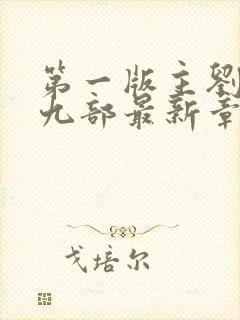 第一版主劉
九部最新章
戈培尔